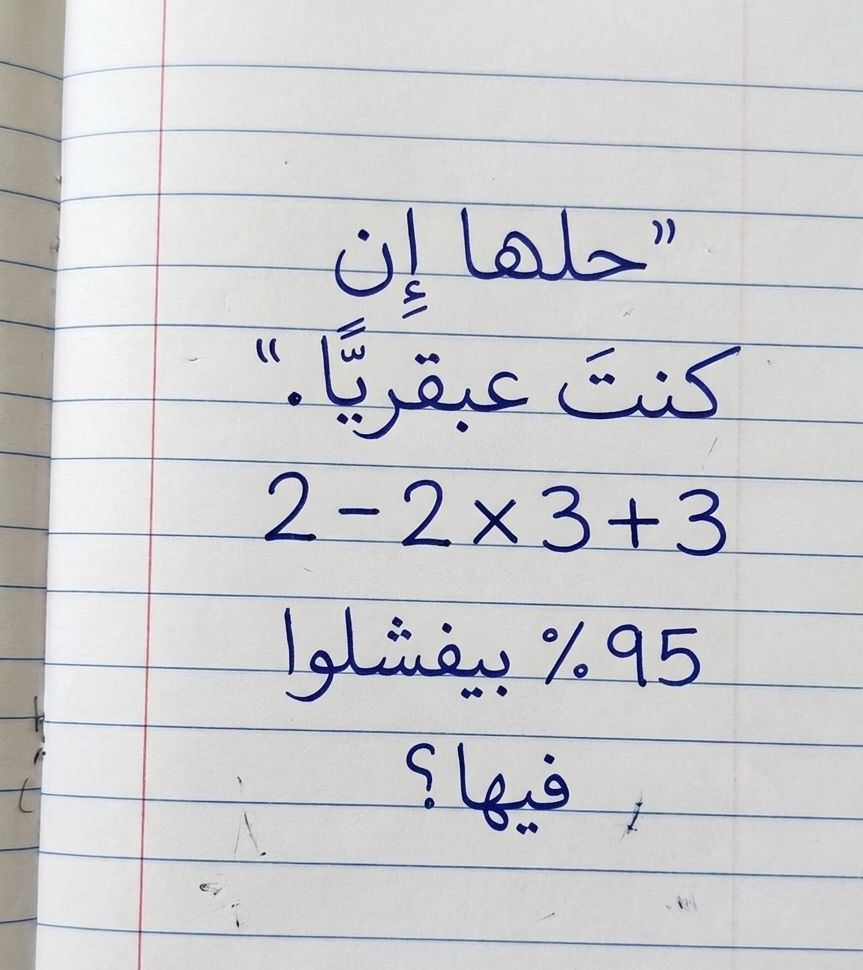 "حلها إِن
كنتَ عبقريًّا."
2 - 2 × 3 + 3
95% بيفشلوا
فيها؟